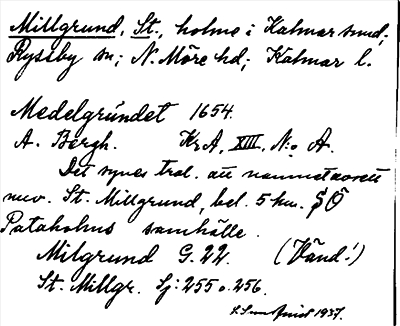 Millgrund, St., holme i Kalmar sund,
Ryssby sn; N. Möre hd; Kalmar l.
Medelgrúndet 1654.
A. Bergh. KrA, XIII, N:o A.
Det synes trol. att namnet avsett
nuv. St. Millgrund, bel. 5 hm. SÖ
Pataholms samhälle.
Milgrund G. 22. (Vänd!)
St. Millgr. Sj: 255 o. 256.
1937.